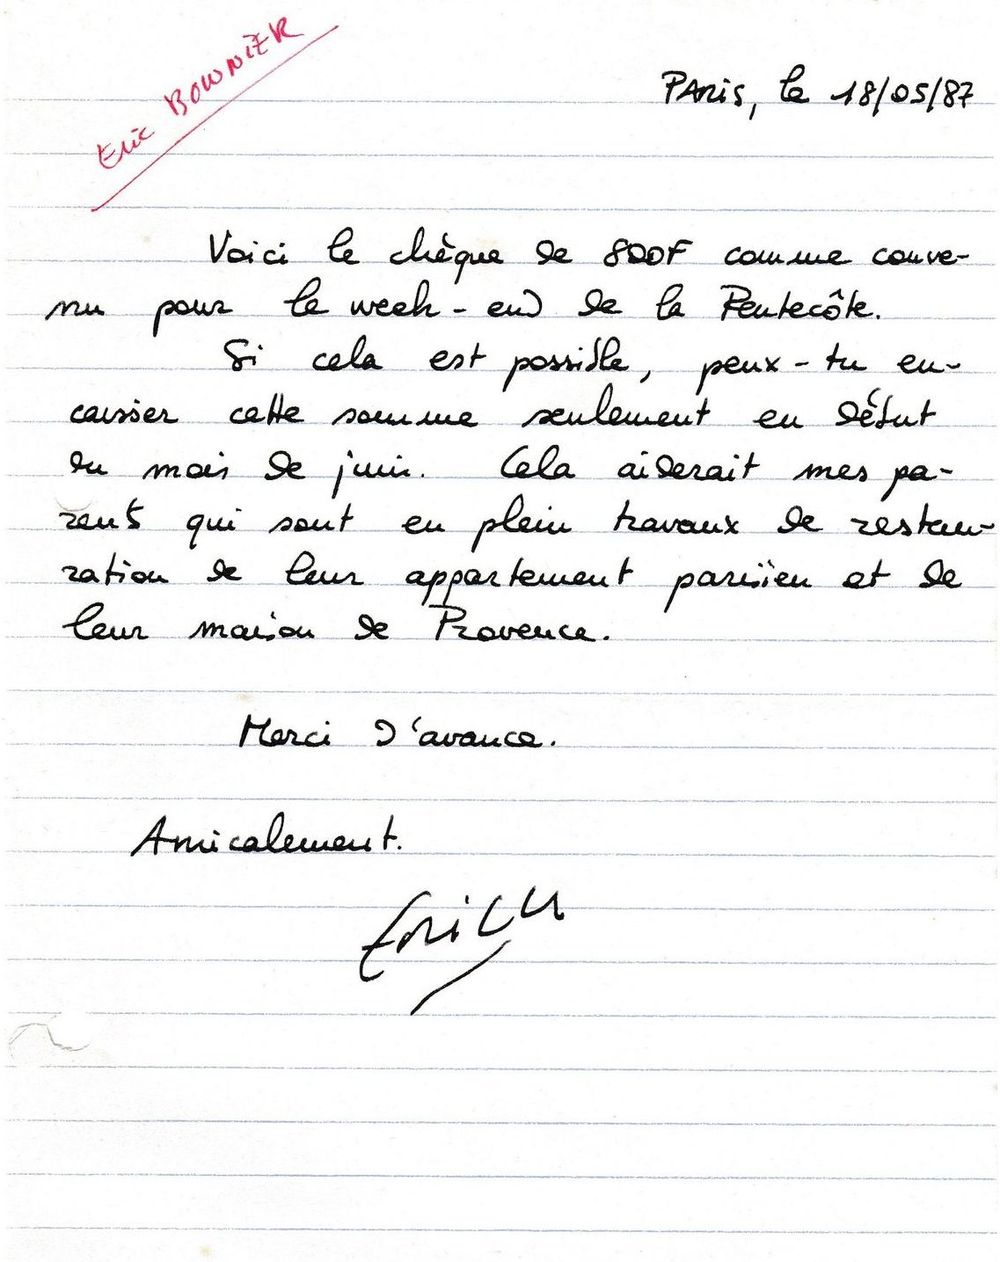 Eric BOWNIER
Paris, le 18/05/87
Voici le chèque de 800F comme conve-
nu pour le week-end de la Pentecôte.
Si cela est possible, peux-tu en-
caisser cette somme seulement en début
du mois de juin. Cela aiderait mes pa-
rents qui sont en plein travaux de restau-
ration de leur appartement parisien et de
leur maison de Provence.
Merci d'avance.
Amicalement.
Eric